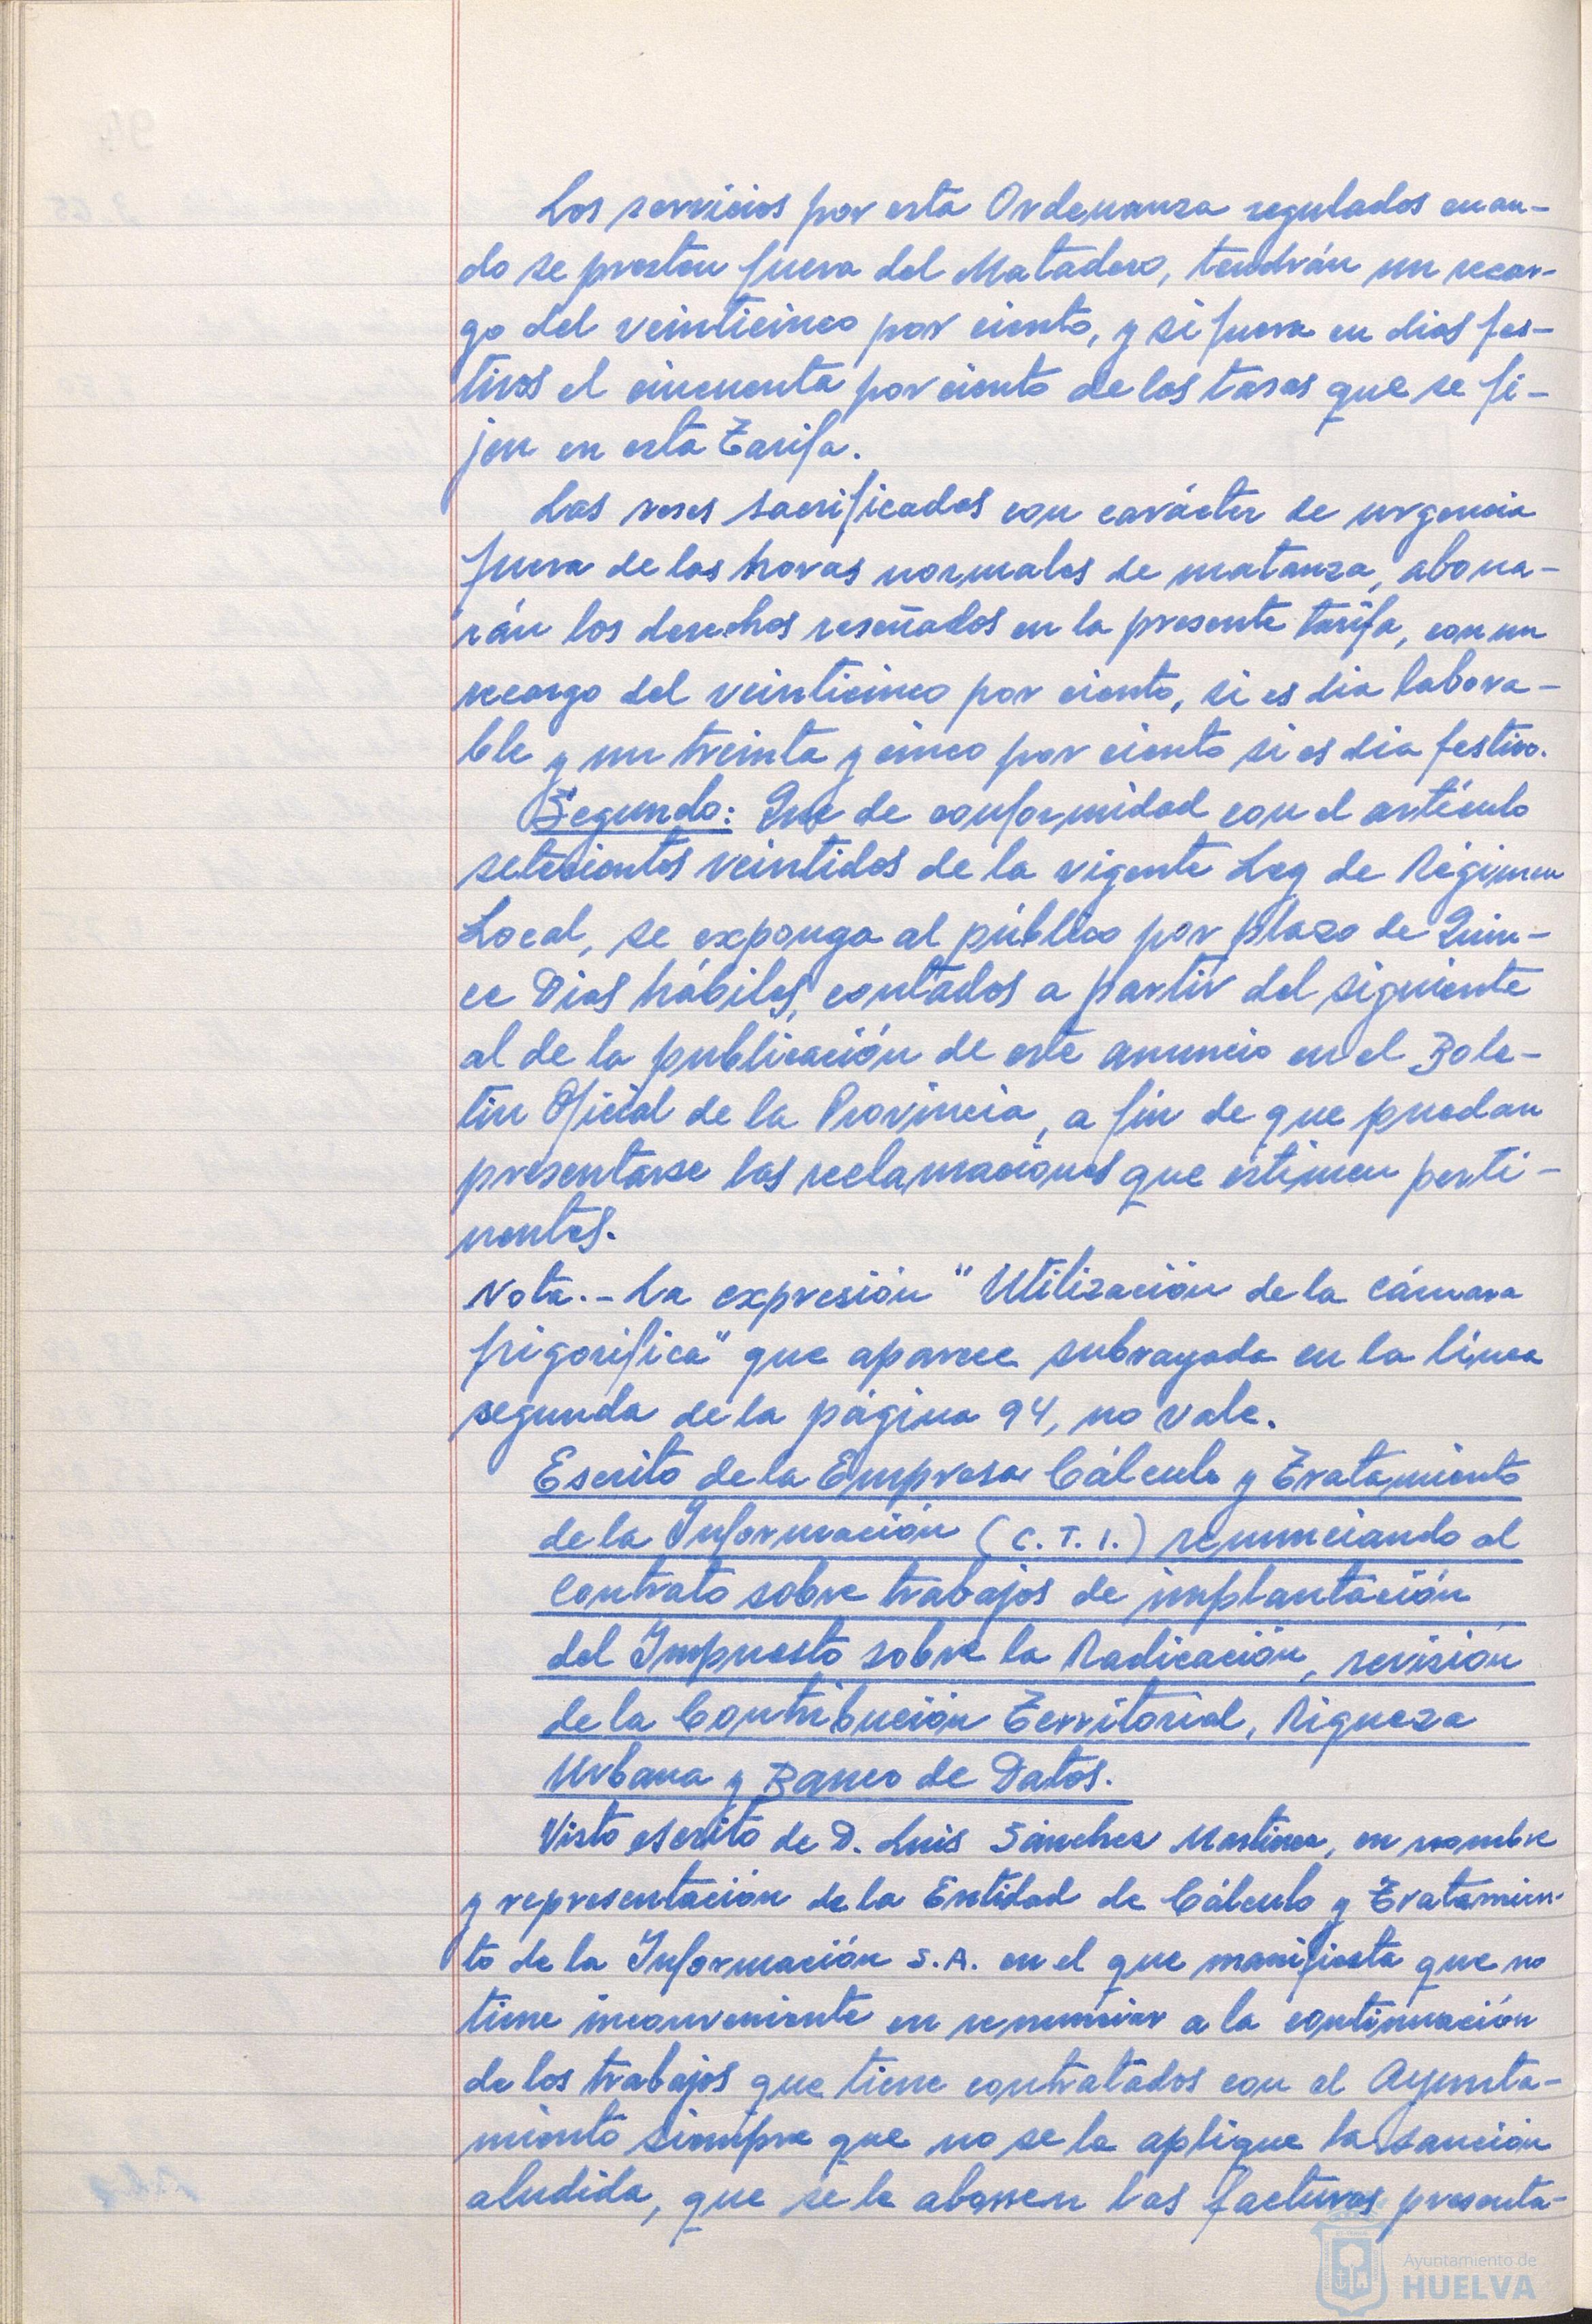 Los servicios por esta Ordenanza regulados cuan-
do se presten fuera del Matadero, tendrán un recar-
go del veinticinco por ciento, y si fuera en dias fes-
tivos el cincuenta por ciento de las tasas que se fi-
jen en esta Tarifa.
Las reses sacrificadas con carácter de urgencia
fuera de las horas normales de matanza, abona-
rán los derechos reseñados en la presente tarifa, con un
recargo del veinticinco por ciento, si es dia labora-
ble y un treinta y cinco por ciento si es dia festivo.
Segundo: Que de conformidad con el artículo
setecientos veintidos de la vigente Ley de Régimen
Local, se exponga al público por plazo de Quin-
ce Dias hábiles, contados a partir del siguiente
al de la publicación de este anuncio en el Bole-
tin Oficial de la Provincia, a fin de que puedan
presentarse las reclamaciones que estimen perti-
nentes.
Nota.- La expresión "Utilización de la cámara
frigorifica" que aparece subrayada en la línea
segunda de la página 94, no vale.
Escrito de la Empresa Cálculo y Tratamiento
de la Información (C.T.I.) renunciando al
contrato sobre trabajos de implantación
del Impuesto sobre la Radicación, revisión
de la Contribución Territorial, Riqueza
Urbana y Banco de Datos.
Visto escrito de D. Luis Sánchez Martinez, en nombre
y representación de la Entidad de Cálculo y Tratamien-
to de la Información S.A. en el que manifiesta que no
tiene inconveniente en renunciar a la continuación
de los trabajos que tiene contratados con el Ayunta-
miento siempre que no se le aplique la sanción
aludida, que se le abonen las facturas presenta-
Ayuntamiento de
HUELVA